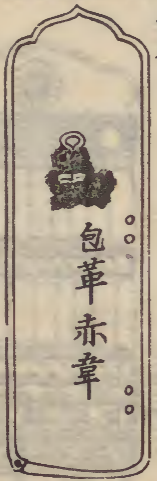 包革赤韋